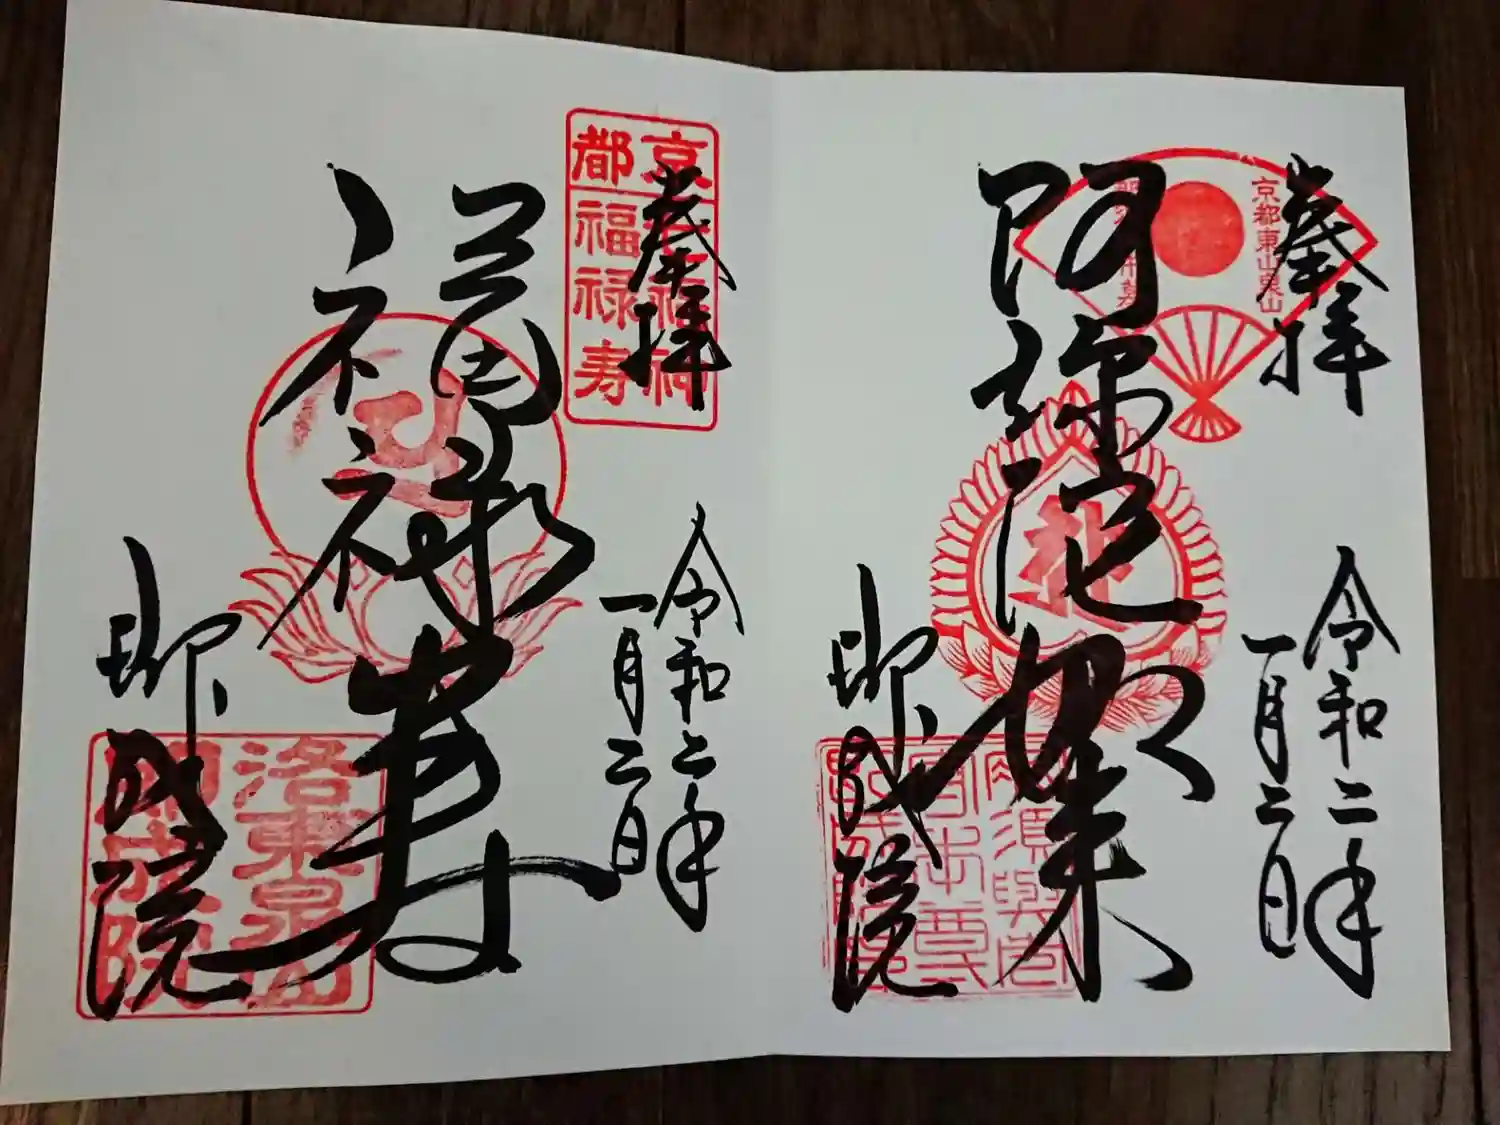 奉拝
令和二年
一月二日
阿弥陀如来
即成院
京都東山泉山
奉拝
令和二年
一月二日
福禄寿
即成院
京都
福禄寿
洛東泉山
即成院